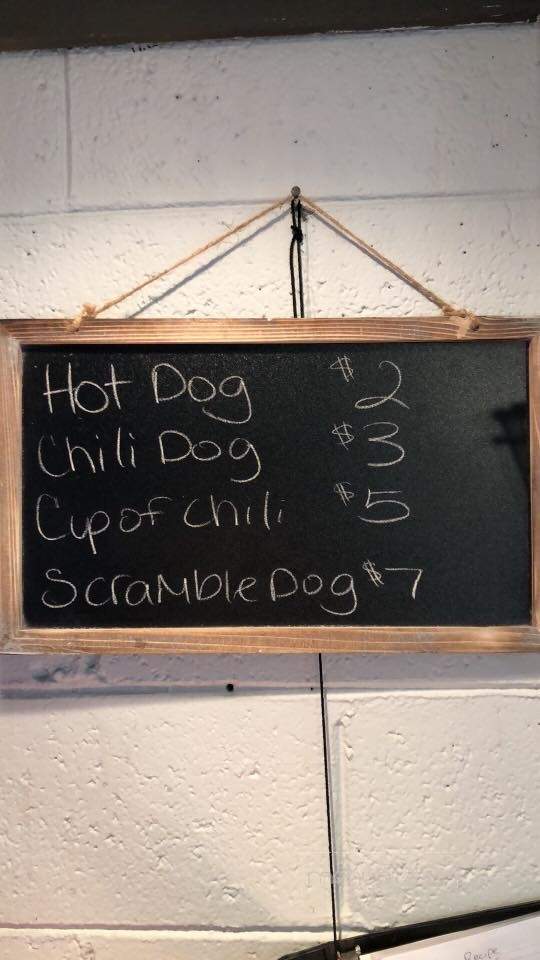 Hot Dog $2
Chili Dog $3
Cup of Chili $5
Scramble Dog $7
Recipe